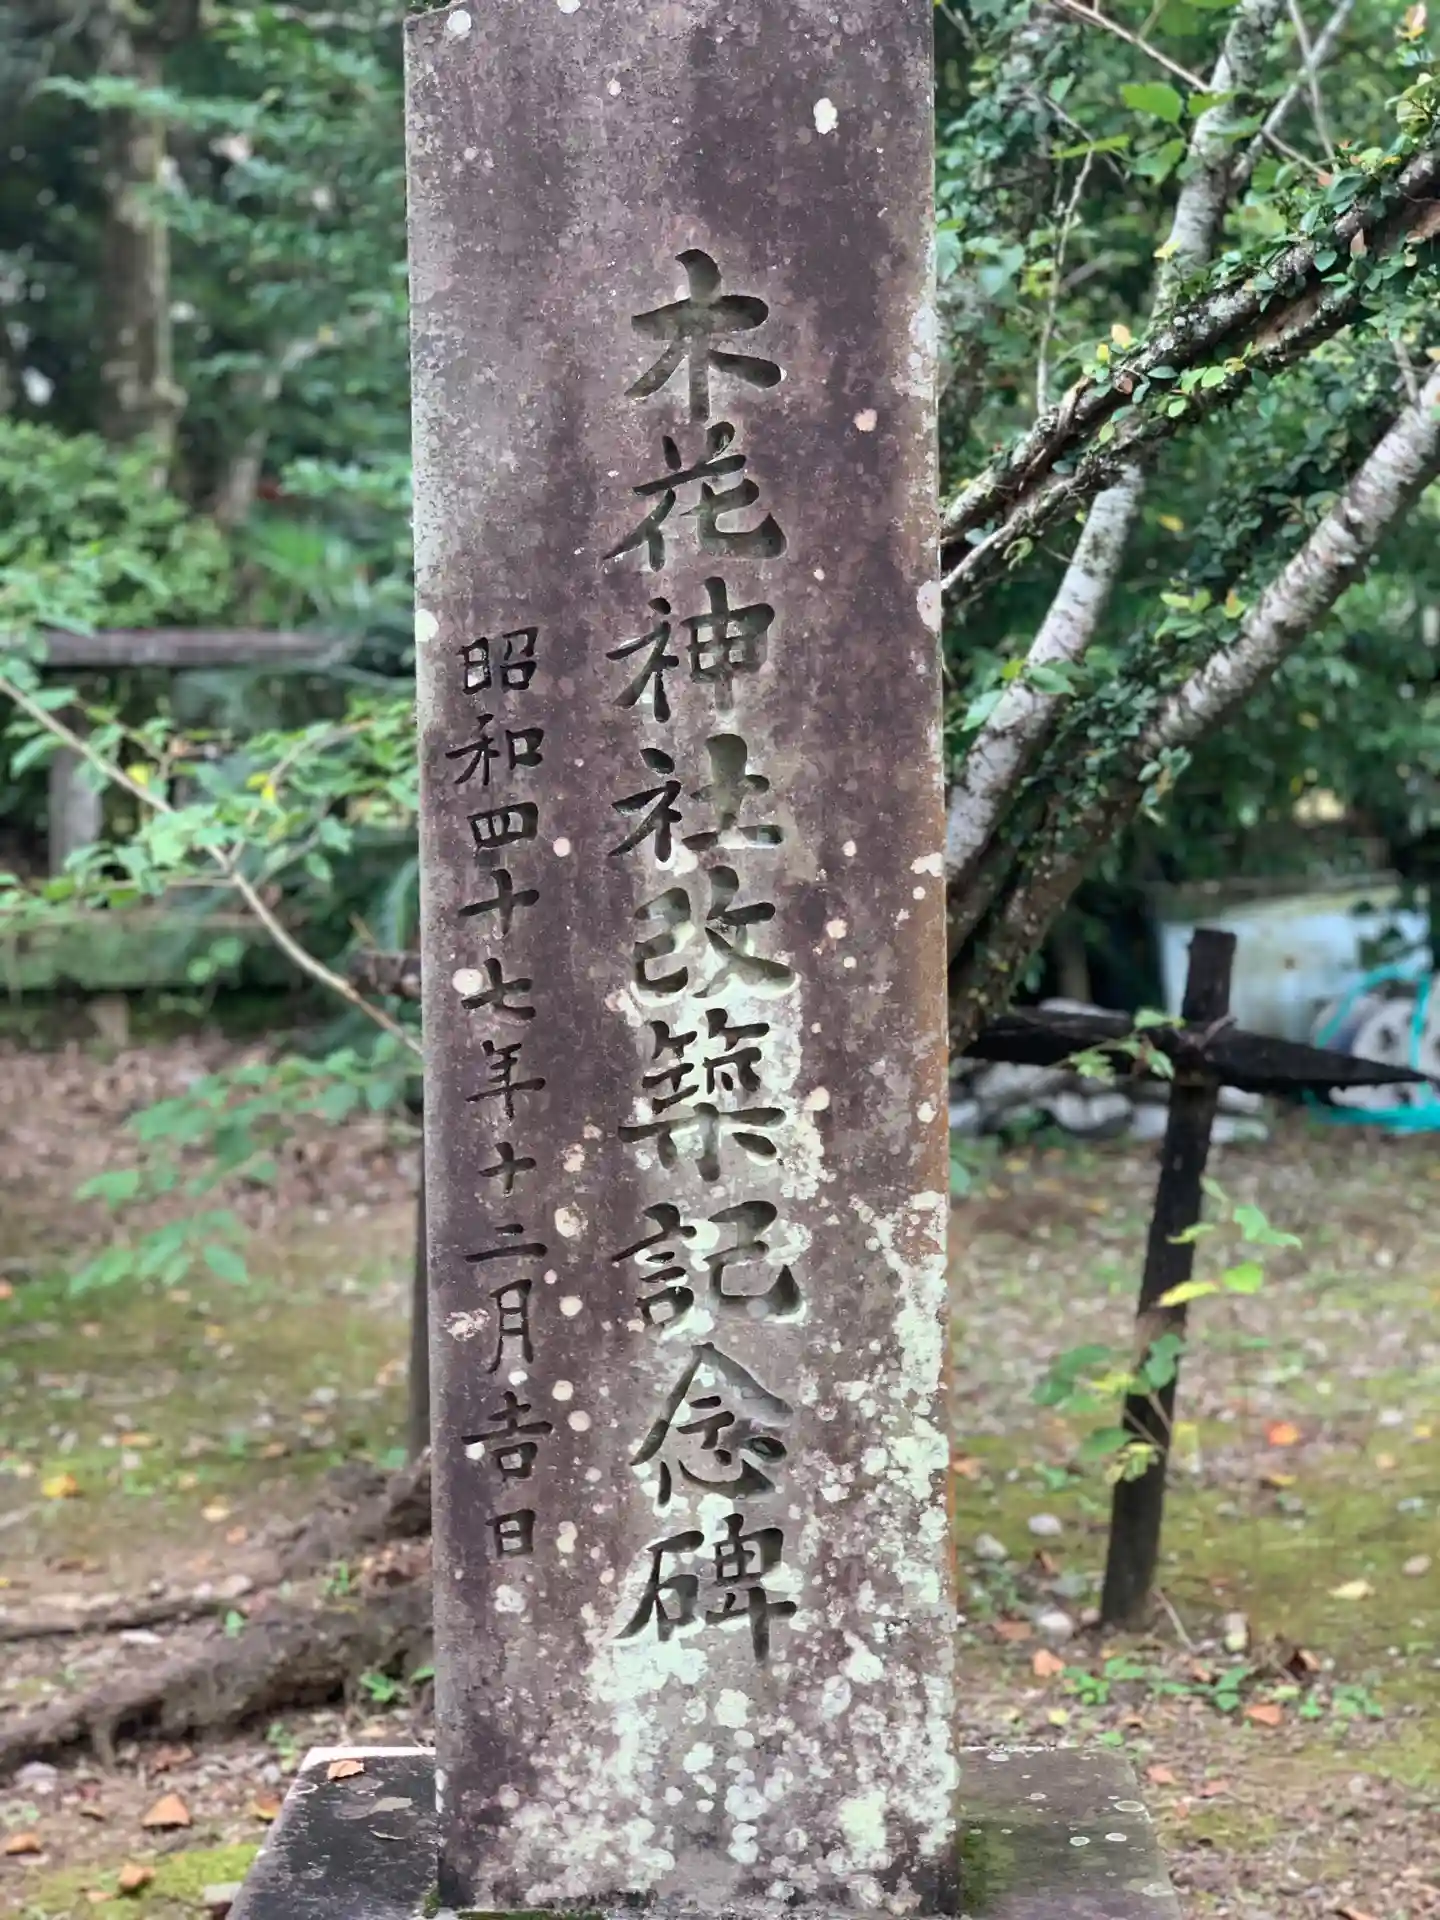 木花神社改築記念碑
昭和四十七年十二月吉日